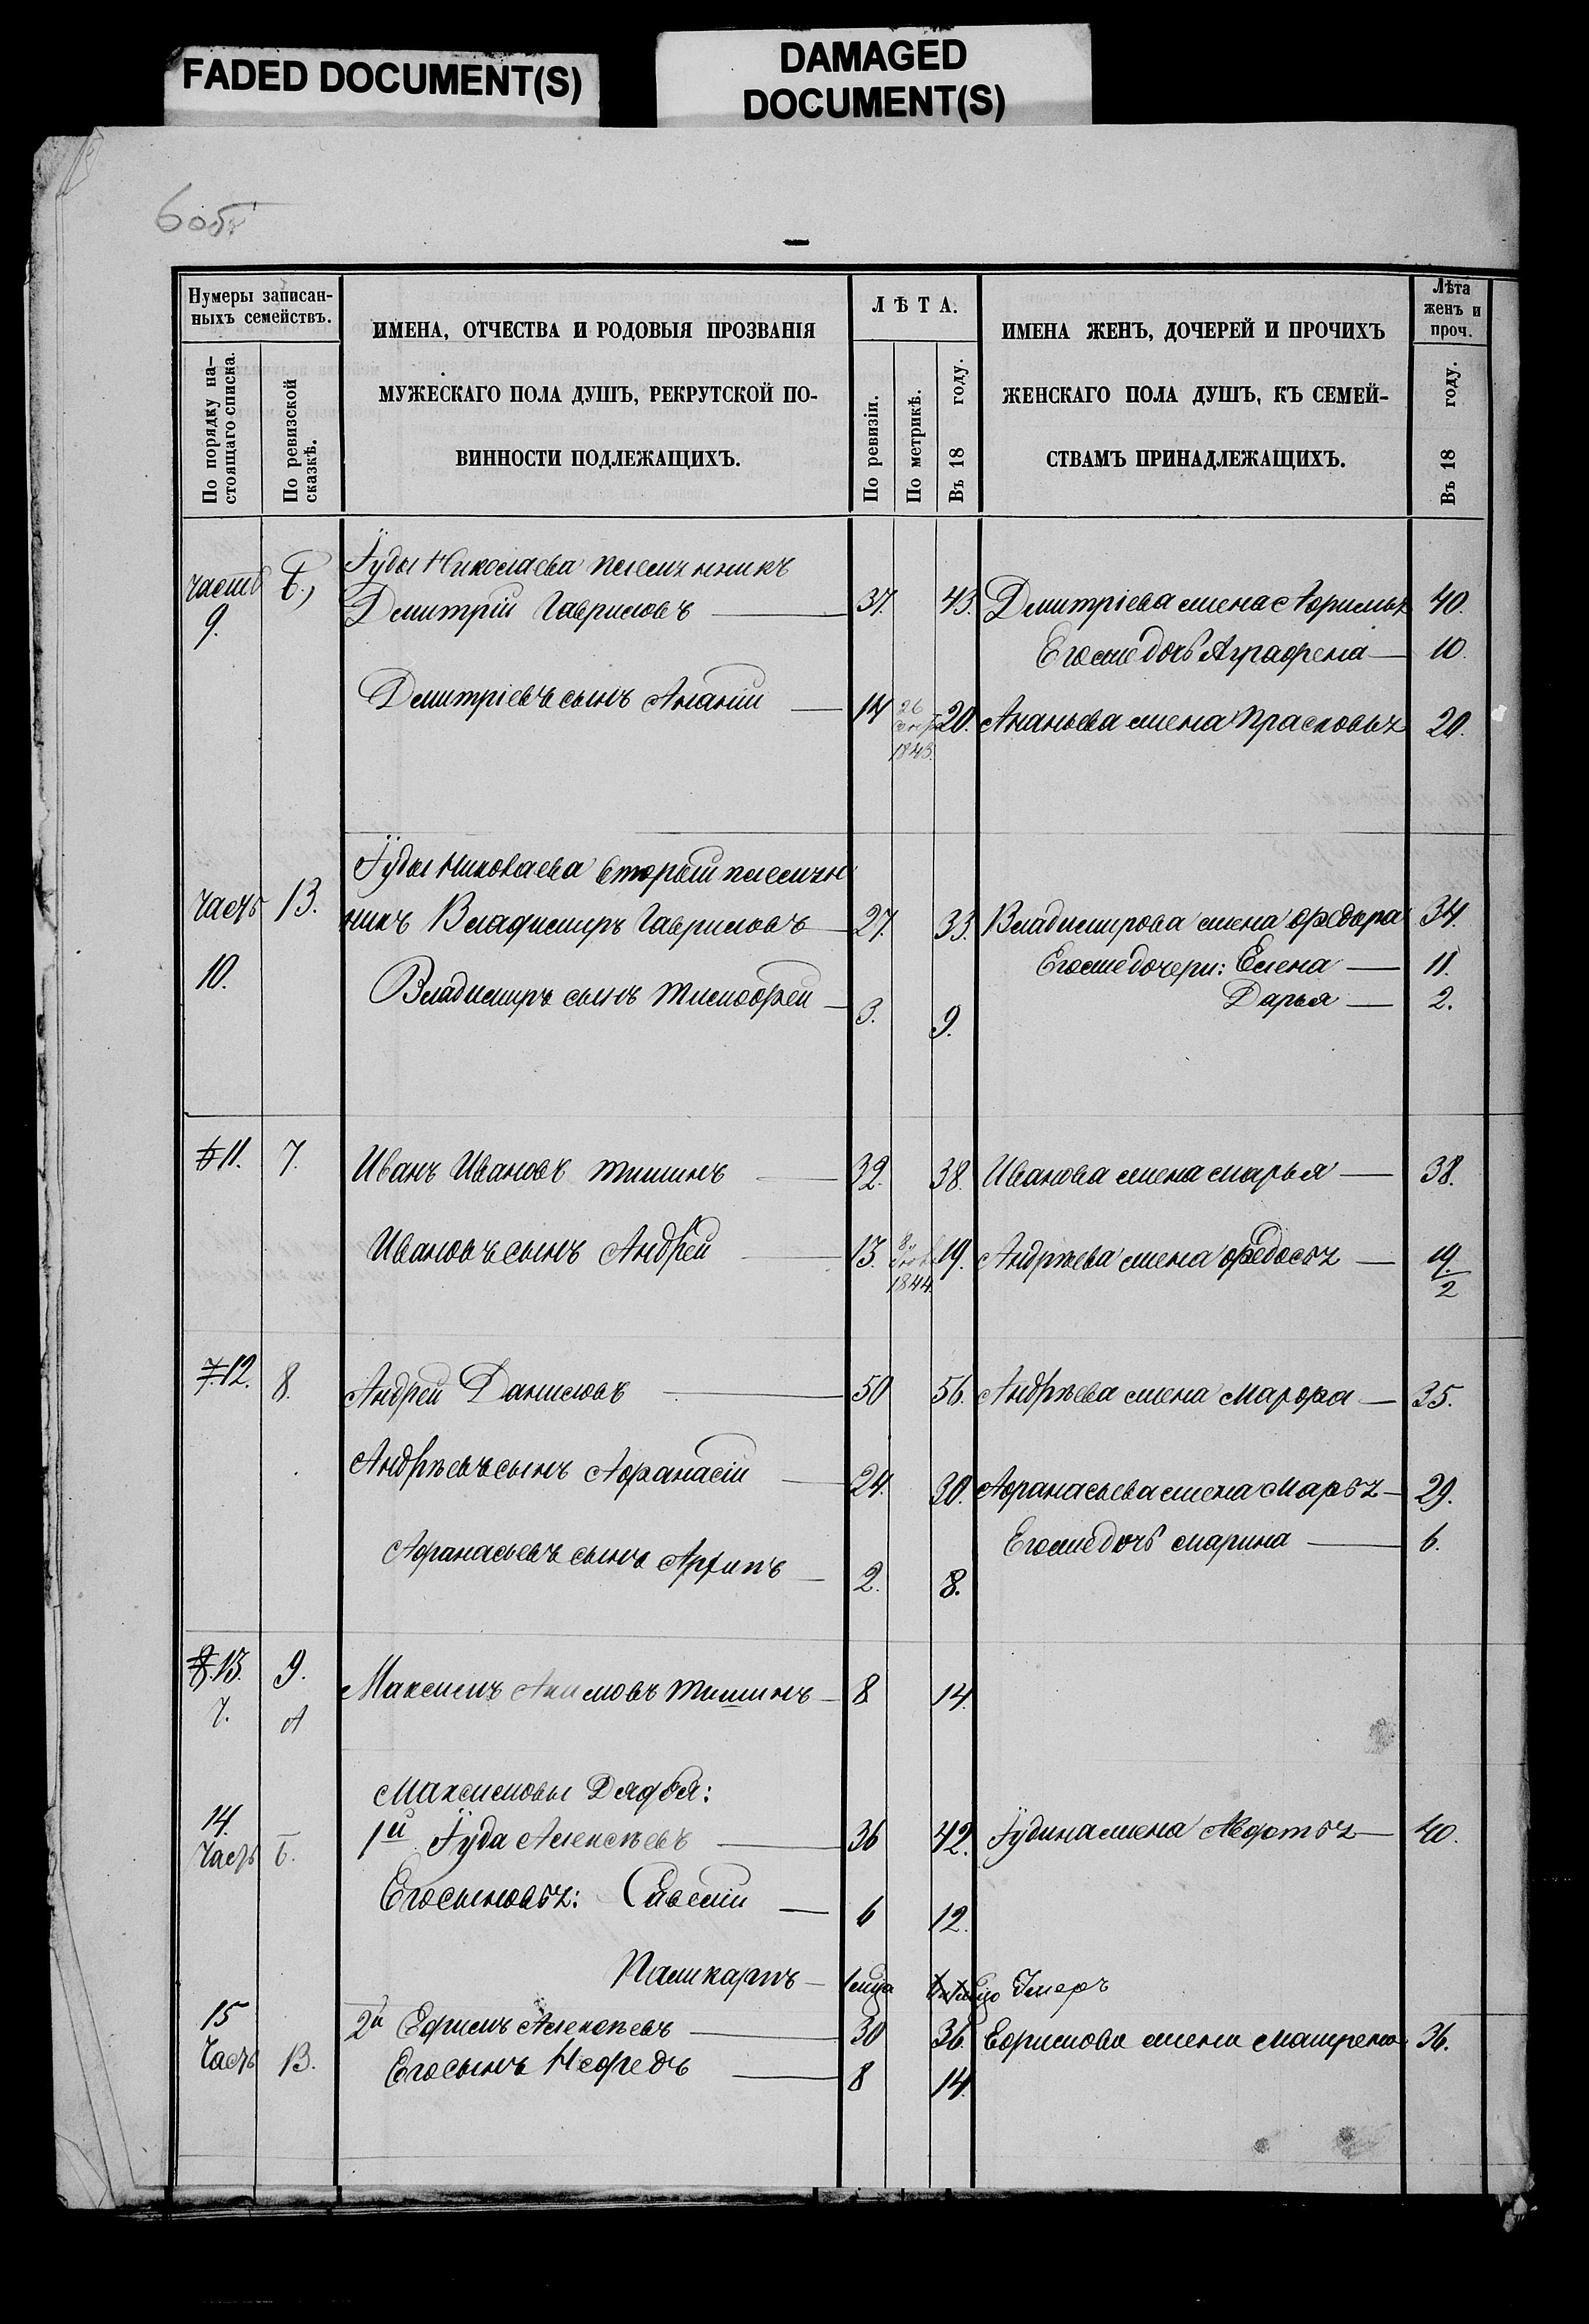 FADED DOCUMENT(S)
DAMAGED
DOCUMENT(S)
6 об.
Нумеры записан-
ныхъ семействъ.
По порядку на-
стоящаго списка.
По ревизской
сказкѣ.
ИМЕНА, ОТЧЕСТВА И РОДОВЫЯ ПРОЗВАНІЯ
МУЖЕСКАГО ПОЛА ДУШЪ, РЕКРУТСКОЙ ПО-
ВИННОСТИ ПОДЛЕЖАЩИХЪ.
ЛѢТА.
По ревизіи.
По метрикѣ.
Въ 18 году.
ИМЕНА ЖЕНЪ, ДОЧЕРЕЙ И ПРОЧИХЪ
ЖЕНСКАГО ПОЛА ДУШЪ, КЪ СЕМЕЙ-
СТВАМЪ ПРИНАДЛЕЖАЩИХЪ.
Лѣта
женъ и
проч.
Въ 18 году.
Іуды Николаева племянникъ
часть 9. Б.) Дмитрій Гавриловъ 37. 43. Дмитріева жена Афимья 40.
Его же дочь Аграфена 10.
Дмитріевъ сынъ Ананій 14 26 1843. 20. Ананьева жена Прасковья 20.
Іуды Николаева вторый племян
часть 10. В. никъ Владимиръ Гавриловъ 27. 33. Владимирова жена Федора 34.
Его же дочери: Елена 11.
Владимиръ сынъ Тимофей 3. 9. Дарья 2.
6 11. 7. Иванъ Ивановъ Тишинъ 32. 38. Иванова жена Марья 38.
Ивановъ сынъ Андрей 13. 8 1844. 19. Андрѣева жена Федосья 19. 2
7. 12. 8. Андрей Даниловъ 50 56. Андрѣева жена Марфа 35.
Андрѣевъ сынъ Афанасій 24. 30. Афанасьева жена Марья 29.
Его же дочь Марина 6.
Афанасьевъ сынъ Архипъ 2. 8.
8. 13. 9. Максимъ Акимовъ Тишинъ 8 14
7. А
Максимовы Дядья:
14. часть Б. 1й Іуда Алексѣевъ 36 42. Іудина жена Авдотья 40.
Его сыновья: Савелій 6 12.
Поликарпъ Умеръ
15 часть В. 2й Ефимъ Алексѣевъ 30 36. Ефимова жена Матрена 36.
Его сынъ Нефедъ 8 14.